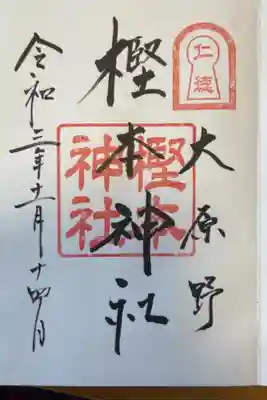 仁徳
大原野
樫本神社
樫本
神社
令和三年十一月十四日